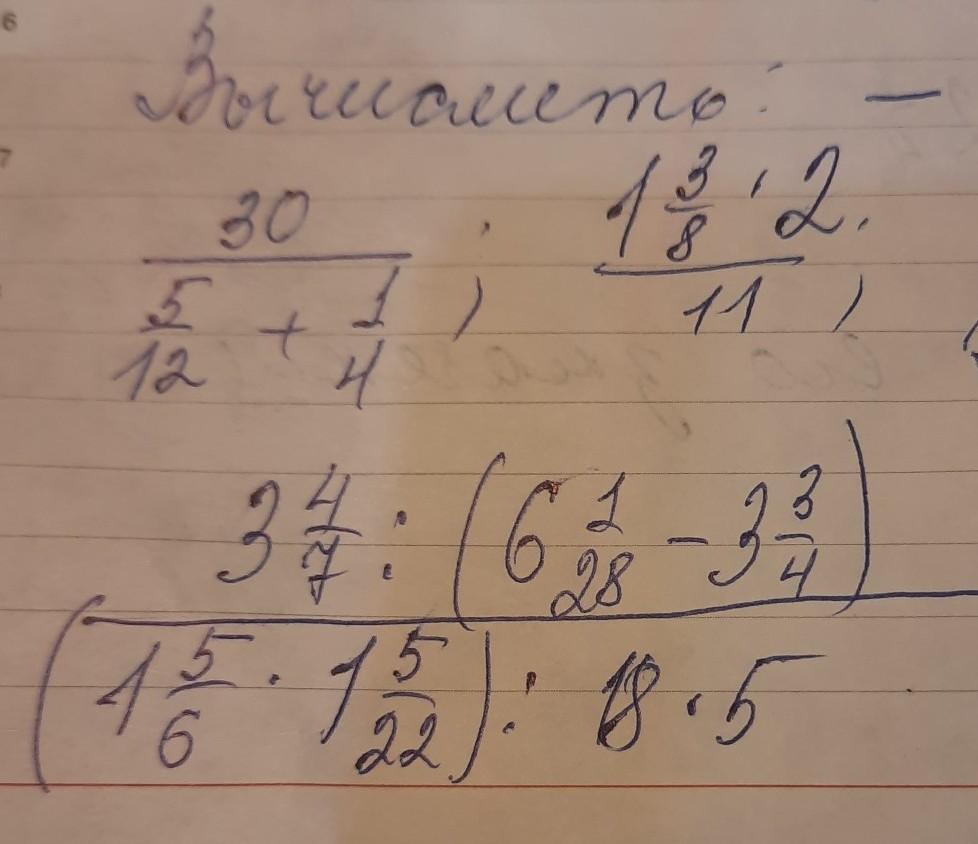 6
Вычислить: —
7
30/(5/12 + 1/4); (1 3/8 · 2)/11,
3 4/7 : (6 1/28 - 3 3/4)
(1 5/6 · 1 5/22) : 18 · 5